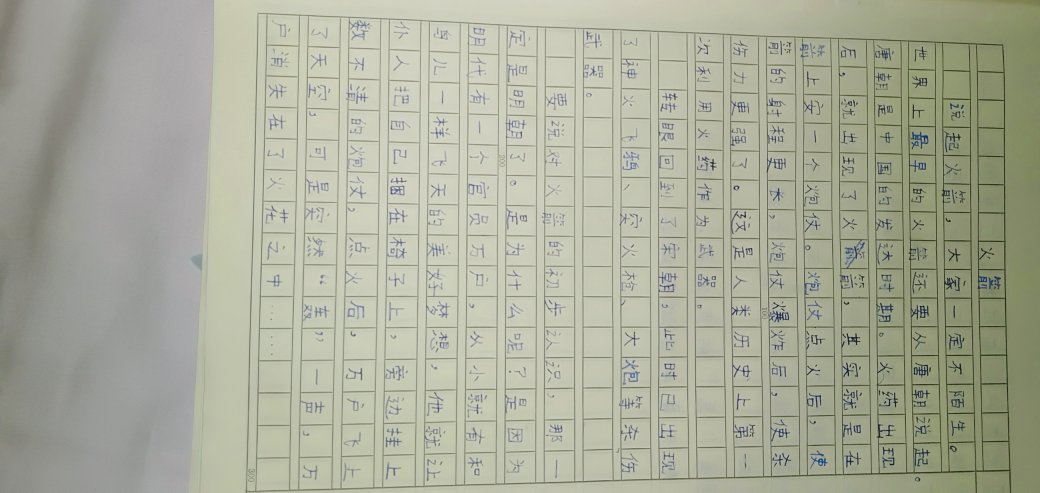 火箭
说起火箭，大家一定不陌生。
世界上最早的火箭还要从唐朝说起。
唐朝是中国的发达时期。火药出现
后，就出现了火箭，其实就是在
箭上安一个炮仗。炮仗点火后，使
箭的射程更长，炮仗爆炸后，使杀
伤力更强了。这是人类历史上第一
次利用火药作为武器。
转眼回到了宋朝，此时已出现
了神火飞鸦、突火枪、大炮等杀伤
武器。
要说对火箭的初步认识，那一
定是明朝了。是为什么呢？是因为
明代有一个官员万户，从小就有和
鸟儿一样飞天的美好梦想，他就让
仆人把自己捆在椅子上，旁边挂上
数不清的炮仗，点火后，万户飞上
了天空，可是突然“轰”一声，万
户消失在了火花之中……
100
200
300